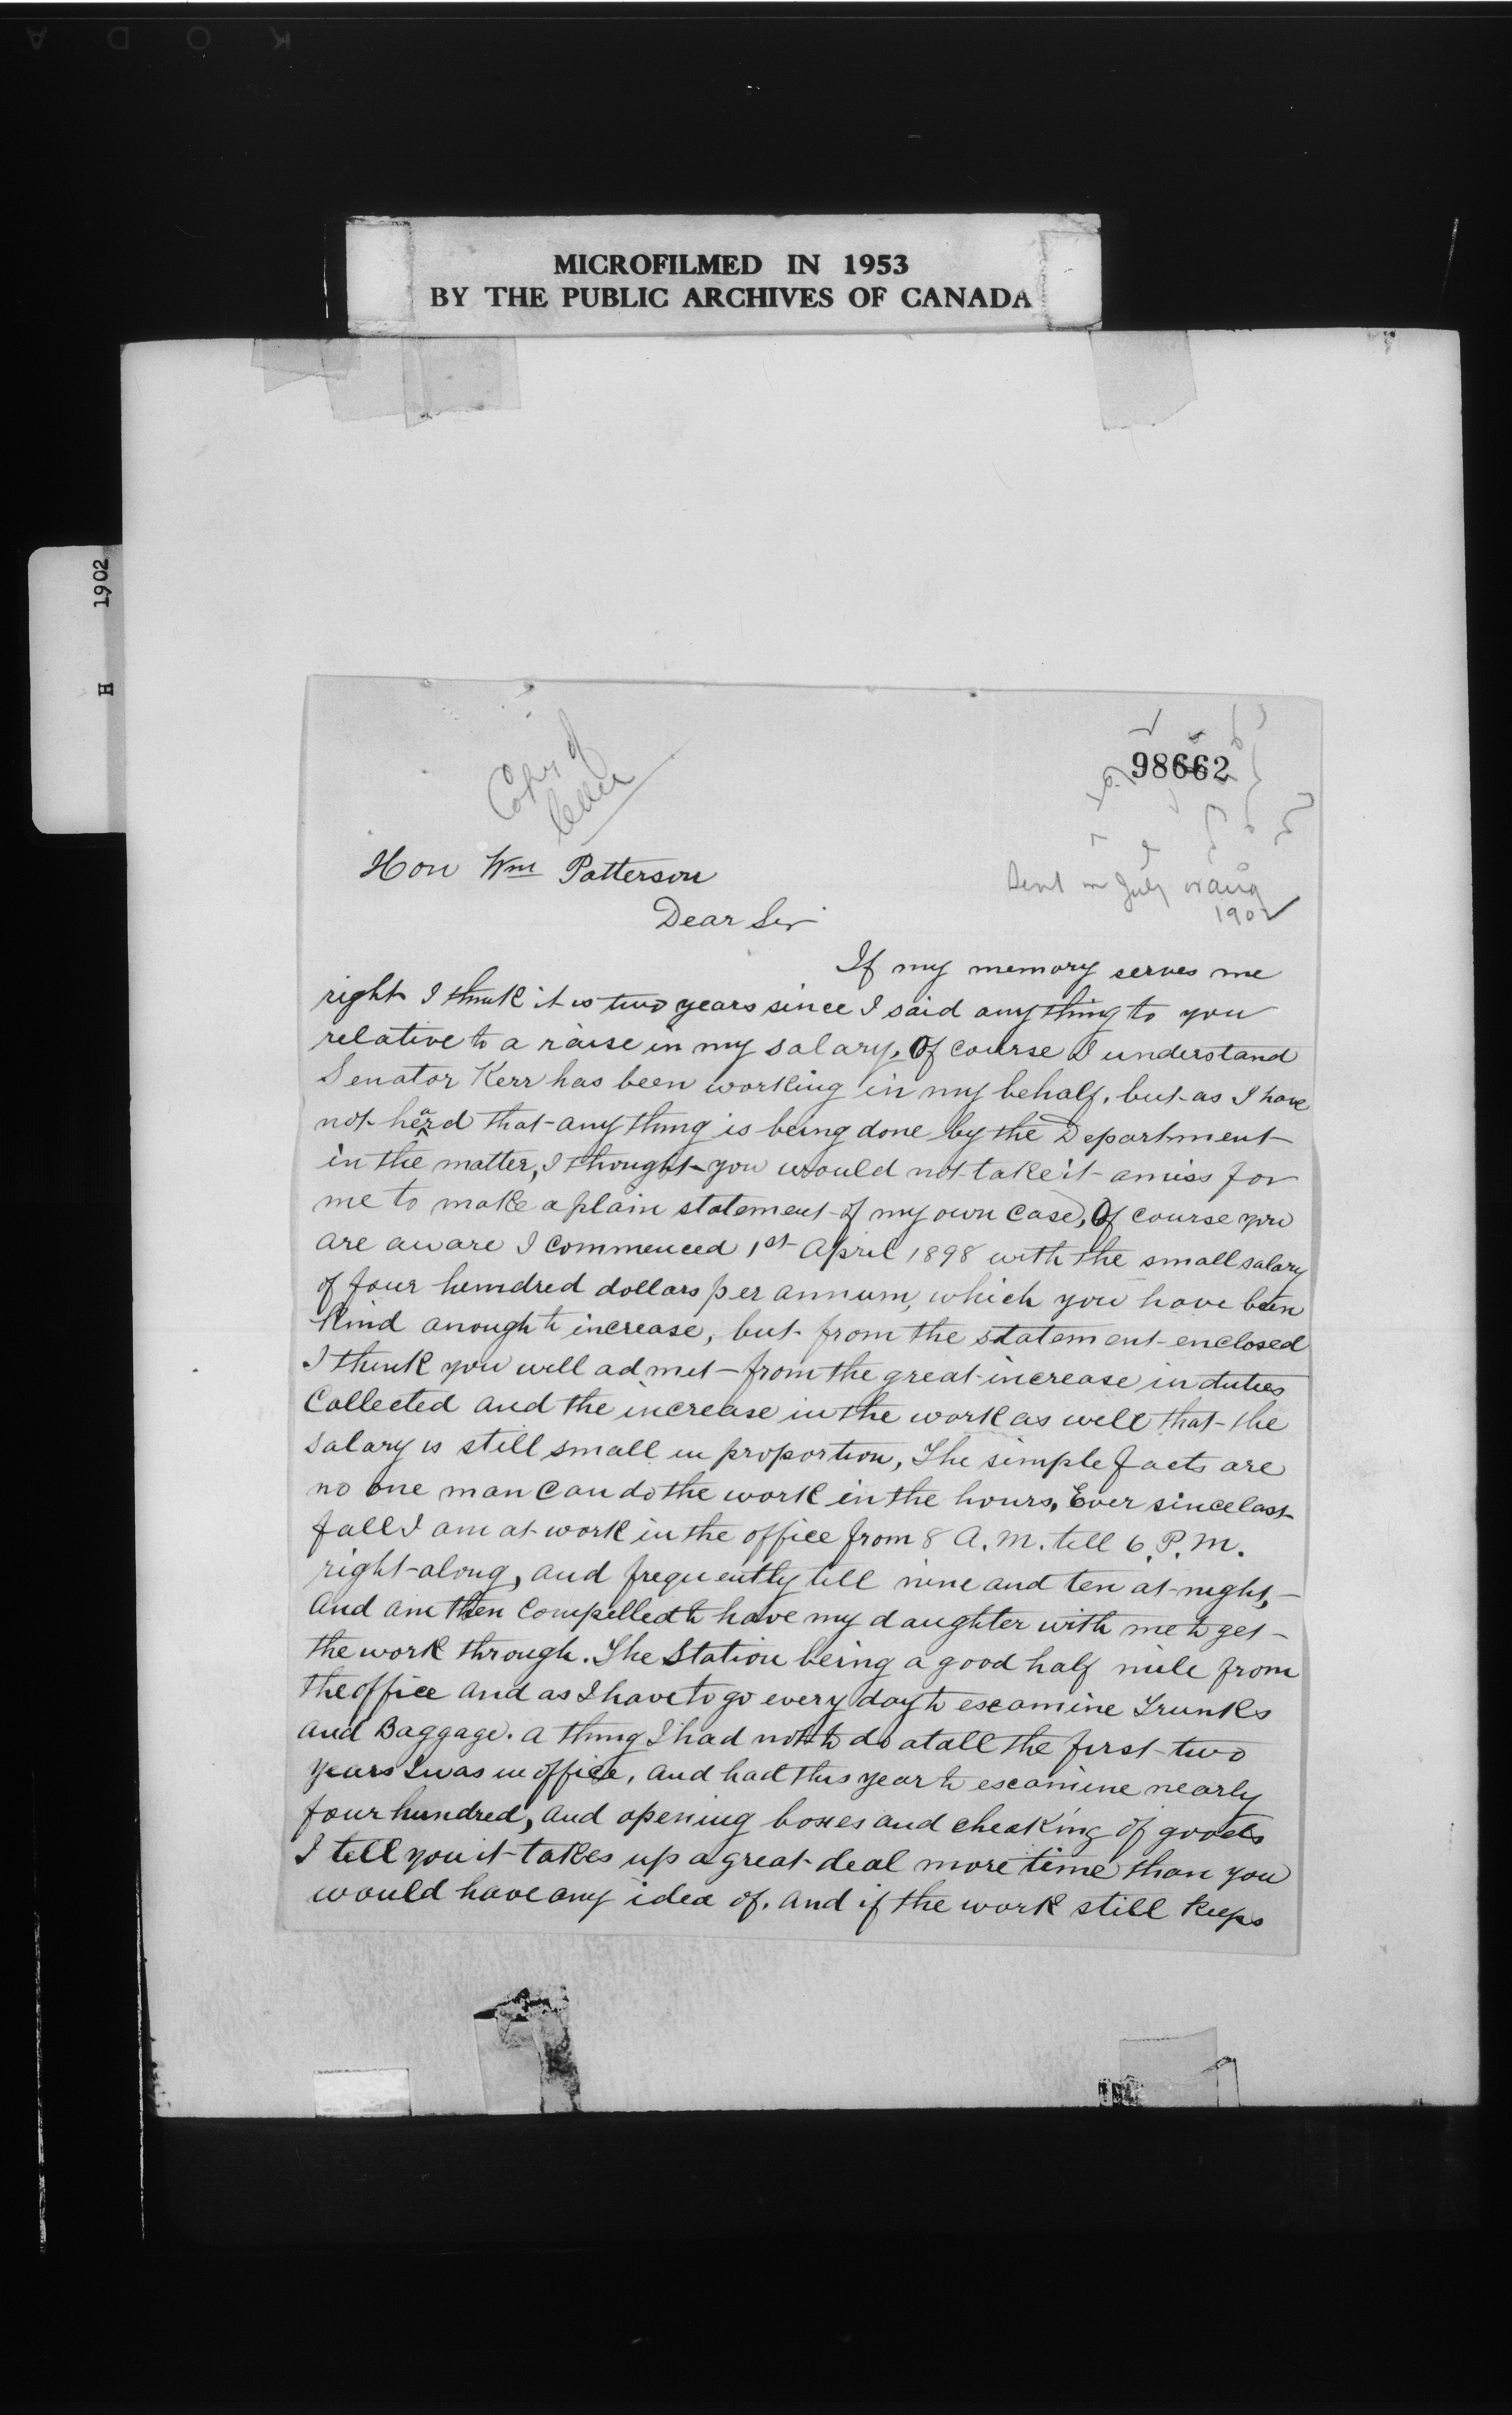 KODA
MICROFILMED IN 1953
BY THE PUBLIC ARCHIVES OF CANADA
H 1902
98662
Copy of
letter
Hon Wm Patterson
Sent in July or aug
1902
Dear Sir
If my memory serves me
right I think it is two years since I said any thing to you
relative to a raise in my salary. Of course I understand
Senator Kerr has been working in my behalf, but as I have
not heard that any thing is being done by the Department
in the matter, I thought you would not take it amiss for
me to make a plain statement of my own case, Of course you
are aware I commenced 1st April 1898 with the small salary
of four hundred dollars per annum, which you have been
kind anough to increase, but from the statement enclosed
I think you will admit from the great increase in duties
Collected and the increase in the work as well that the
salary is still small in proportion, The simple facts are
no one man can do the work in the hours, Ever since last
fall I am at work in the office from 8 A.M. till 6.P.M.
right along, and frequently till nine and ten at night,
and am then compelled to have my daughter with me to get
the work through. The Station being a good half mile from
the office and as I have to go every day to escamine Trunks
and Baggage. a thing I had not to do atall the first two
years I was in office, and had this year to escamine nearly
four hundred, and opening boxes and checking of goods
I tell you it takes up a great deal more time than you
would have any idea of. and if the work still keeps